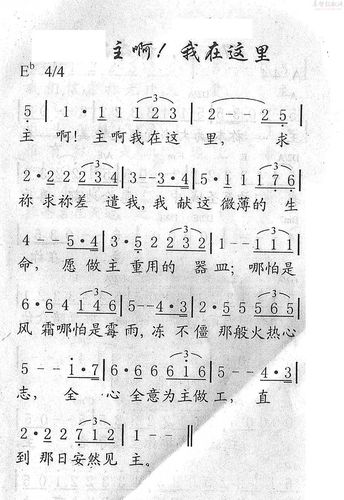 主啊！我在这里
E♭ 4/4
5 | 1 · 1 1 1 2 3 | 2 - - 2 5 |
主 啊！主啊我在这 里， 求
2 · 2 2 2 3 4 | 3 - - 3 · 4 | 5 · 1 1 1 7 6 |
祢 求祢差 遣我，我 献这微薄的 生
4 - - 5 · 4 | 3 · 5 2 2 3 2 | 1 - - 1 1 1 |
命， 愿 做主 重用的 器 皿；哪怕是
6 · 6 4 1 4 6 | 5 - - 4 · 3 | 2 · 5 5 5 6 5 |
风 霜哪怕是霉 雨，冻 不 僵 那般火热心
5 - - i · 7 | 6 · 6 6 6 1 6 | 5 - - 4 · 3 |
志， 全 心 全意为主做工， 直
2 · 2 2 7 1 2 | 1 - - ‖
到 那日安然见 主。